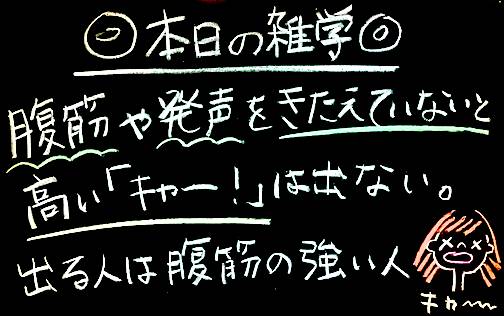 本日の雑学
腹筋や発声をきたえていないと
高い「キャー!」は出ない。
出る人は腹筋の強い人
キャー